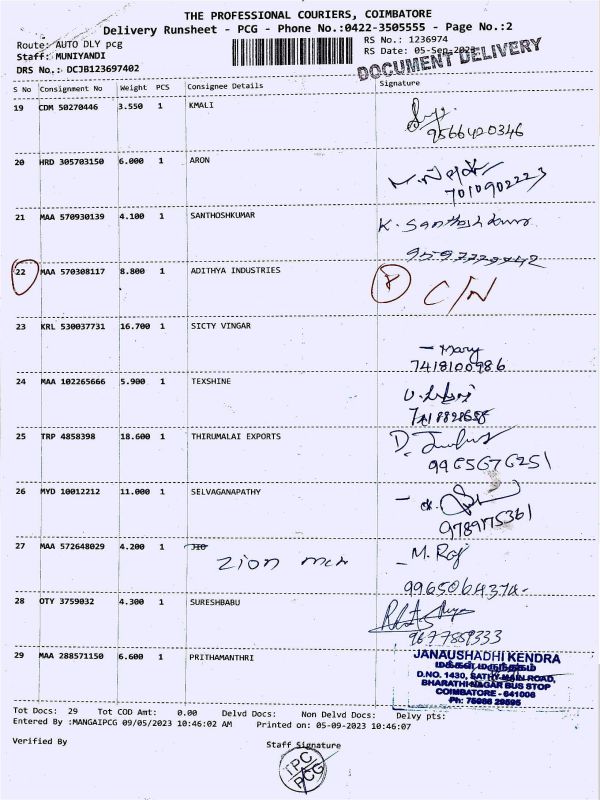 THE PROFESSIONAL COURIERS, COIMBATORE
Delivery Runsheet - PCG - Phone No.:0422-3505555 - Page No.:2
Route: AUTO DLY pcg RS No.: 1236974
Staff: MUNIYANDI RS Date: 05-Sep-2023
DRS No.: DCJB123697402 DOCUMENT DELIVERY
S No Consignment No Weight PCS Consignee Details Signature
19 CDM 50270446 3.550 1 KMALI
9566420346
20 HRD 305703150 6.000 1 ARON
7010902223
21 MAA 570930139 4.100 1 SANTHOSHKUMAR K. Santhosh kumar
22 MAA 570308117 8.800 1 ADITHYA INDUSTRIES 8 C/N
23 KRL 530037731 16.700 1 SICTY VINGAR
- Mary
7418100986
24 MAA 102265666 5.900 1 TEXSHINE
25 TRP 4858398 18.600 1 THIRUMALAI EXPORTS
9965676251
26 MYD 10012212 11.000 1 SELVAGANAPATHY
9789775361
27 MAA 572648029 4.200 1 JIO - M. Raj
Zion
28 OTY 3759032 4.300 1 SURESHBABU
29 MAA 288571150 6.600 1 PRITHAMANTHRI
JANAUSHADHI KENDRA
மக்கள் மருந்தகம்
D.NO. 1430, SATHY MAIN ROAD,
BHARATHI NAGAR BUS STOP
COIMBATORE - 641006
Tot Docs: 29 Tot COD Amt: 0.00 Delvd Docs: Non Delvd Docs: Delvy pts:
Entered By :MANGAIPCG 09/05/2023 10:46:02 AM Printed on: 05-09-2023 10:46:07
Verified By Staff Signature
TPC
PCG